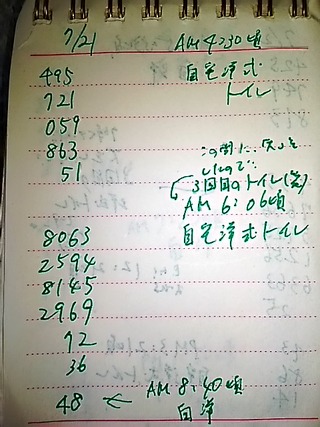 7/21 AM 4:30頃
495 自宅洋式
721 トイレ
059
863 この間に
51
3回目のトイレ(笑)
AM 6:06頃
8063 自宅洋式トイレ
2594
8145
2969
72
36
48 ← AM 8:40頃
自洋